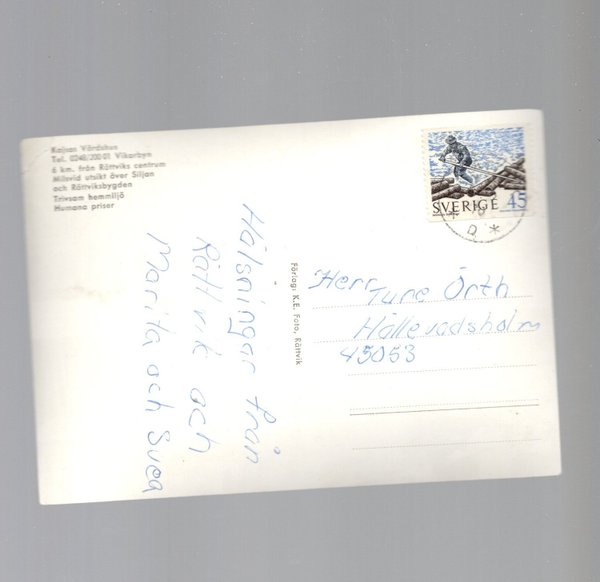 Kaijsas Värdshus
Tel. 0248/200 01 Vikarbyn
6 km. från Rättviks centrum
Milsvid utsikt över Siljan
och Rättviksbygden
Trivsam hemmiljö
Humana priser
SVERIGE 45
D *
Hälsningar från
Rättvik och
Marita och Svea
Förlag: K.E. Foto, Rättvik
Herr
Ture Örth
Hällevadsholm
45053